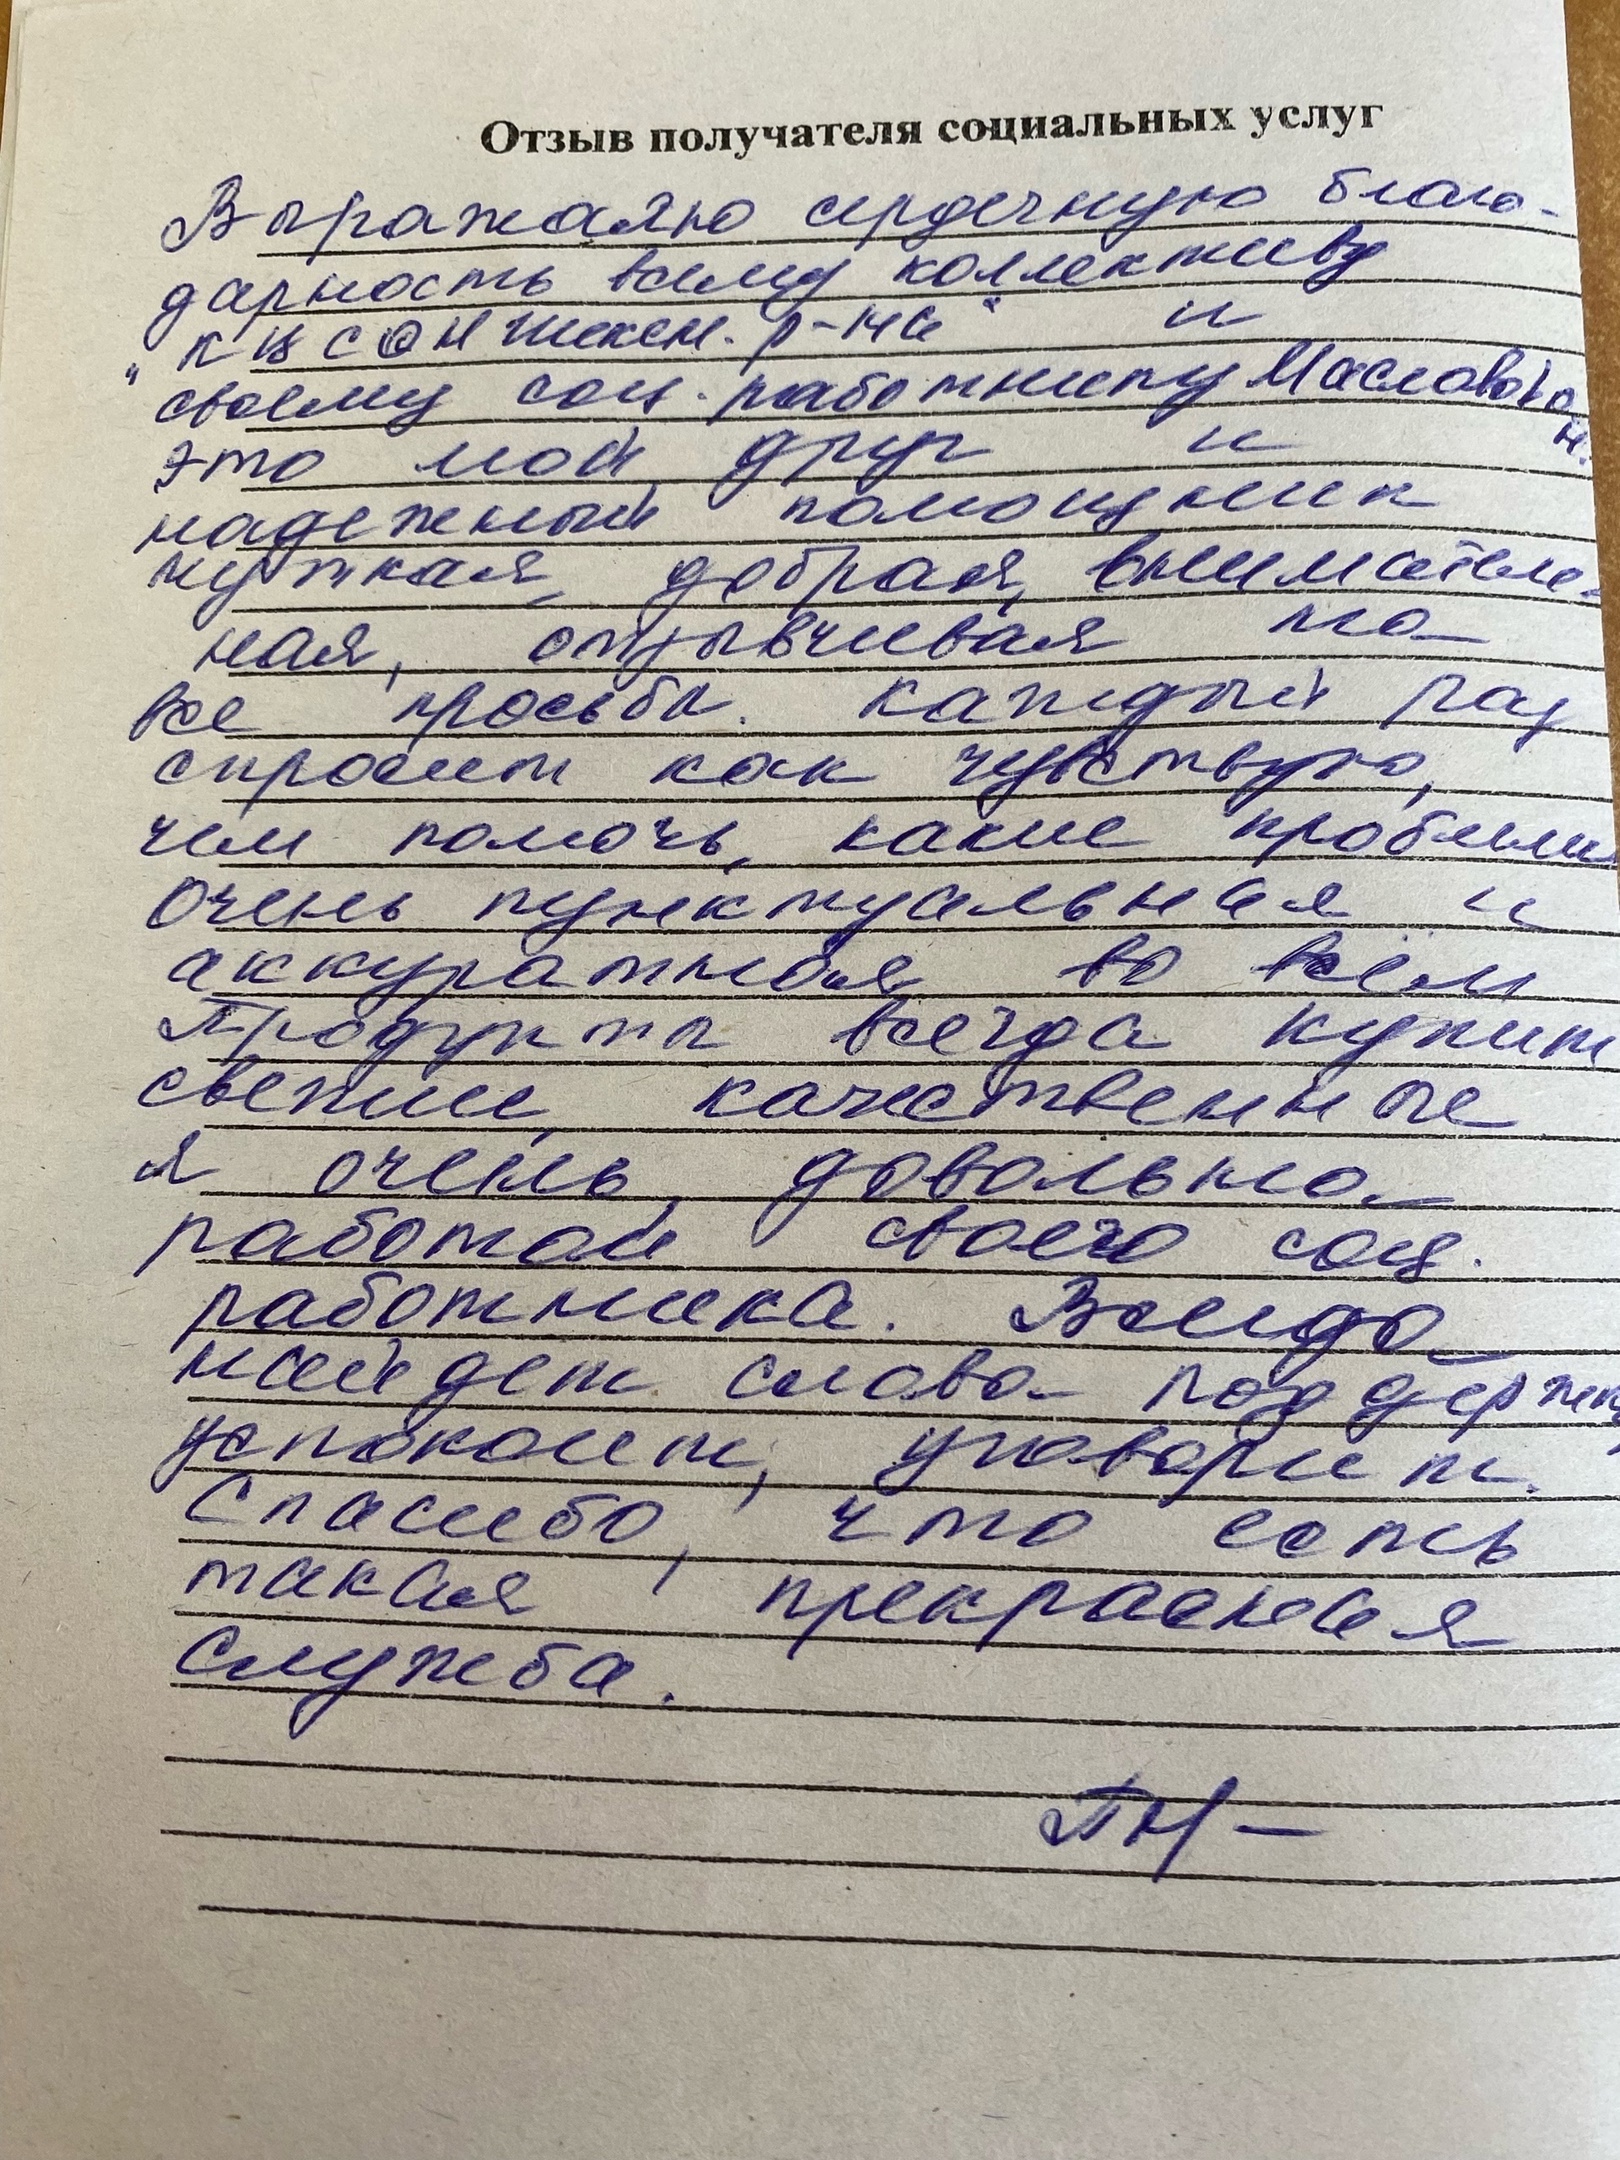 Отзыв получателя социальных услуг
Выражаю сердечную благо-
дарность всему коллективу
"КЦСОН Шексн. р-на" и
своему соц. работнику Масловой О.
Н.
это мой друг и
надежный помощник
чуткая, добрая, вниматель-
ная, отзывчивая на
все просьбы. каждый раз
спросит как чувствую,
чем помочь, какие проблемы
очень пунктуальная и
аккуратная во всём
Продукты всегда купит
свежие, качественные
я очень довольна
работой своего соц.
работника. Всегда
найдет слова поддержки,
успокоит, уговорит.
Спасибо, что есть
такая прекрасная
служба.